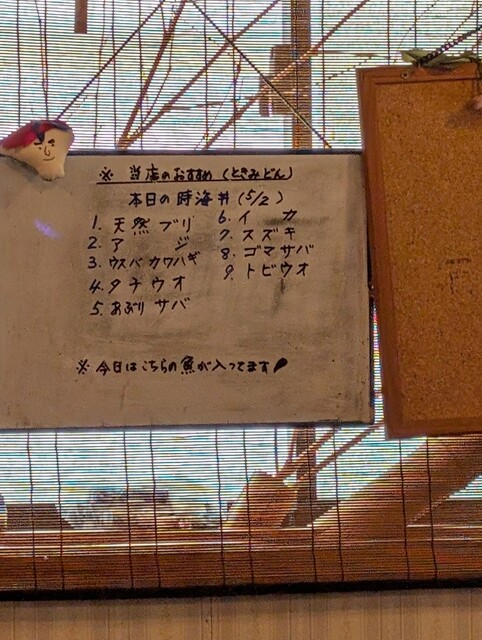 ※ 当店のおすすめ (ときみどん)
本日の時海丼 (5/2)
1. 天然ブリ
2. アジ
3. ウスバカワハギ
4. タチウオ
5. あぶりサバ
6. イカ
7. スズキ
8. ゴマサバ
9. トビウオ
※ 今日はこちらの魚が入ってます!